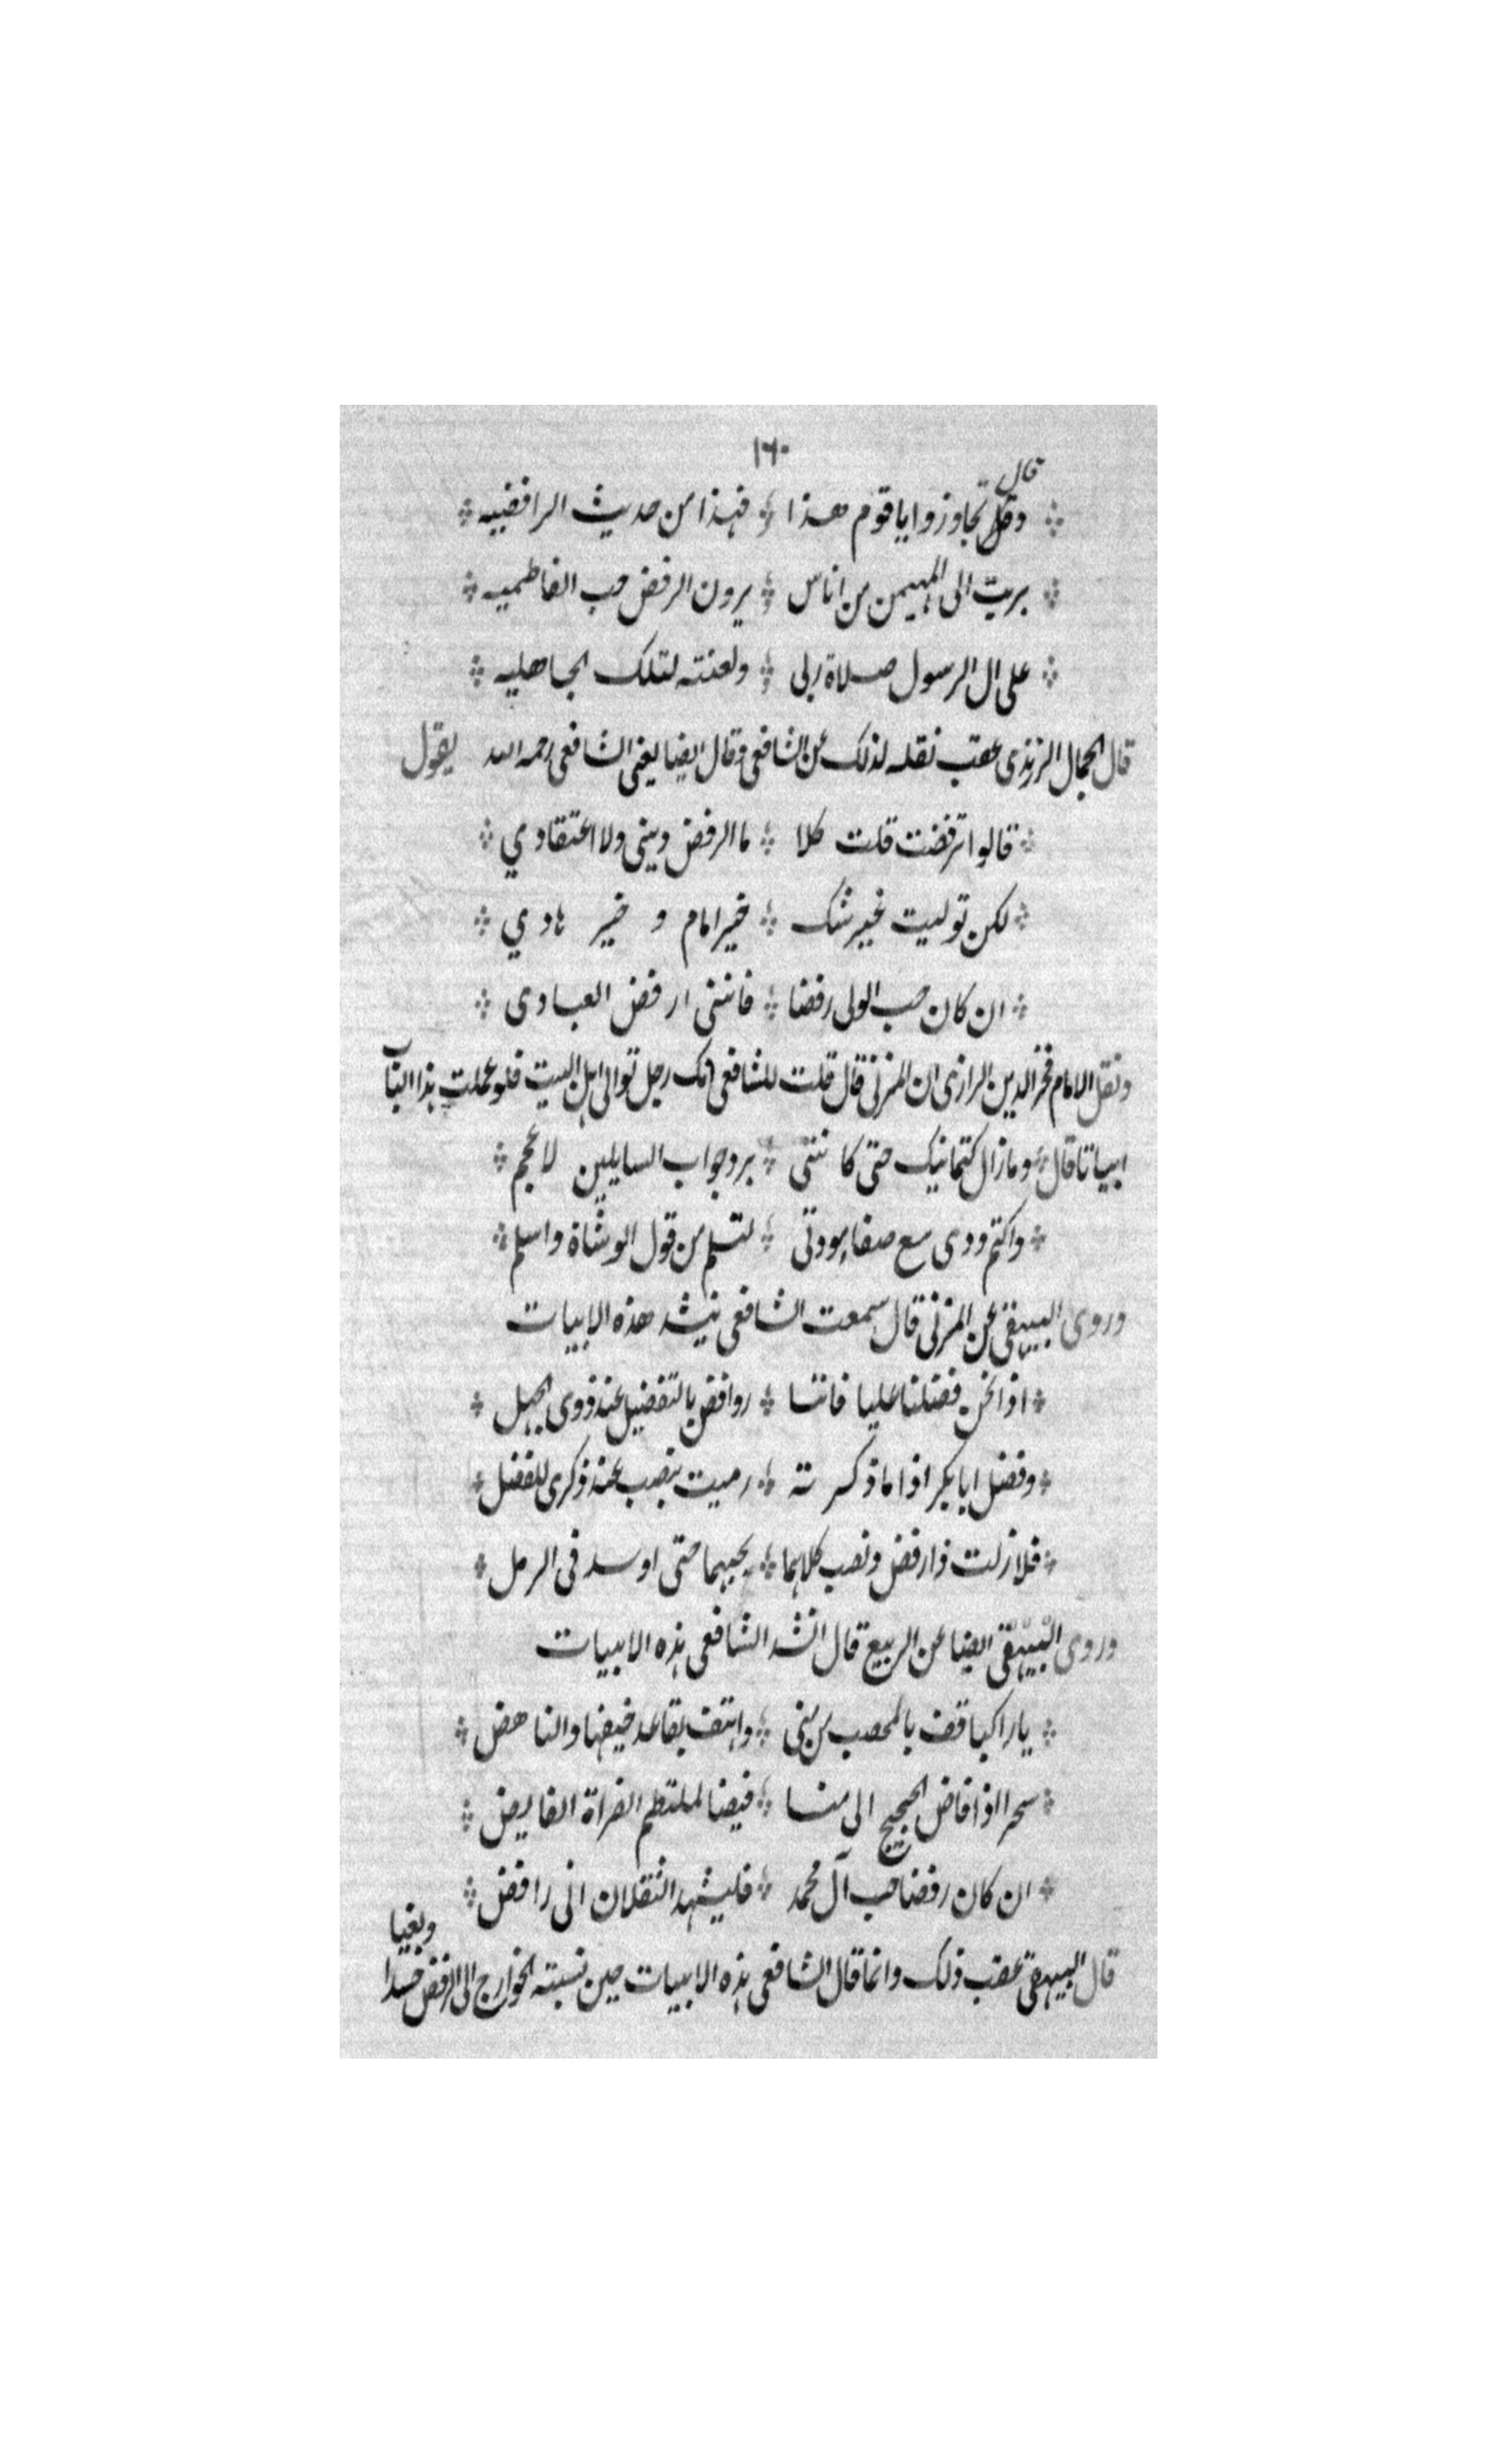 ١٦٠
قال
وقل تجاوزوا يا قوم هذا ؞ فهذا من حديث الرافضيه
بريت الى المهيمن من اناس ؞ يرون الرفض حب الفاطميه
على ال الرسول صلاة ربى ؞ ولعنته لتلك الجاهليه
قال الجمال الزرندى عقب نقله لذلك عن الشافعى وقال ايضا يعنى الشافعى رحمه الله يقول
قالوا ترفضت قلت كلا ؞ ما الرفض دينى ولا اعتقادي
لكن توليت غير شك ؞ خير امام و خير هادي
ان كان حب الولى رفضا ؞ فاننى ارفض العبادى
ونقل الامام فخر الدين الرازى ان المزنى قال قلت للشافعى انك رجل توالى اهل البيت فلو عملت هذا الباب
ابياتا قال ؞ وما زال كتمانيك حتى كاننى ؞ برد جواب السايلين لاعجم
واكتم ودى مع صفاء مودتى ؞ لتسلم من قول الوشاة واسلم
وروى البيهقى عن المزنى قال سمعت الشافعى ينشد هذه الابيات
اذا نحن فضلنا عليا فاننا ؞ روافض بالتفضيل عند ذوى الجهل
وفضل ابا بكر اذا ما ذكرته ؞ رميت بنصب عند ذكرى للفضل
فلا زلت ذا رفض ونصب كلاهما ؞ بحبهما حتى اوسد فى الرمل
وروى البيهقى ايضا عن الربيع قال انشد الشافعى هذه الابيات
يا راكبا قف بالمحصب من منى ؞ واهتف بقاعد خيفها والناهض
سحرا اذا فاض الحجيج الى منا ؞ فيضا لملتطم الفراة الفايض
ان كان رفضا حب آل محمد ؞ فليشهد الثقلان انى رافض
قال البيهقى عقب ذلك وانما قال الشافعى هذه الابيات حين نسبته الخوارج الى الرفض حسدا وبغيا